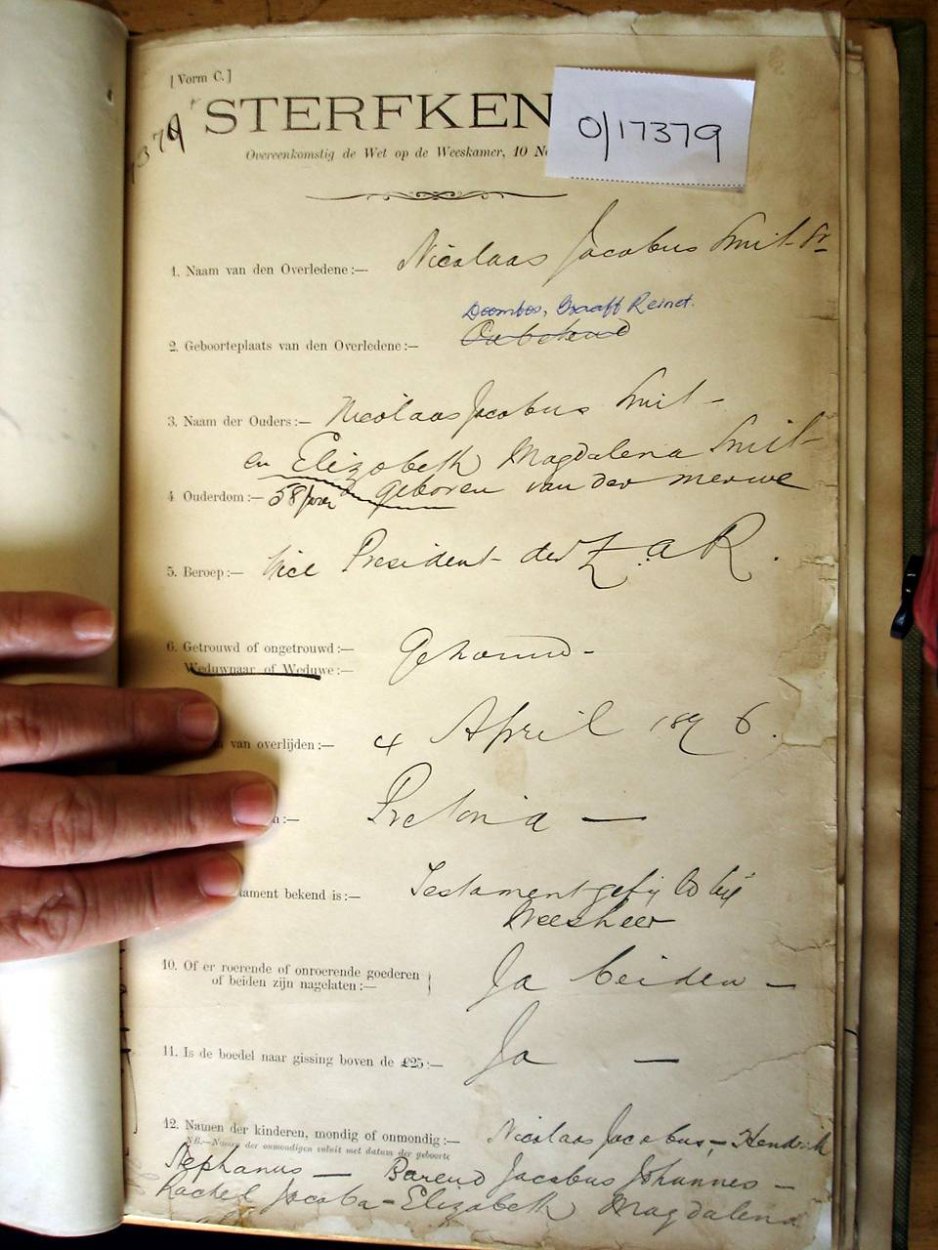 [Vorm C.]
17379
STERFKEN
0/17379
Overeenkomstig de Wet op de Weeskamer, 10 No
1. Naam van den Overledene:— Nicolaas Jacobus Smit Sr
Doornbos, Graaff Reinet.
2. Geboorteplaats van den Overledene:— Onbekend
3. Naam der Ouders:— Nicolaas Jacobus Smit –
en Elizabeth Magdalena Smit –
4 Ouderdom:— 58 jaar geboren van der Merwe
5. Beroep:— Vice President der Z.A.R.
6. Getrouwd of ongetrouwd:— Getrouwd –
Weduwnaar of Weduwe:—
van overlijden:— 4 April 1896.
:— Pretoria —
tament bekend is:— Testament bij
Weesheer
10. Of er roerende of onroerende goederen
of beiden zijn nagelaten:— Ja beiden –
11. Is de boedel naar gissing boven de £25:— Ja —
12. Namen der kinderen, mondig of onmondig:— Nicolaas Jacobus, – Hendrik
NB.—Namen der onmondigen voluit met datum der geboorte
Stephanus — Barend Jacobus Johannes –
Rachel Jacoba – Elizabeth Magdalena